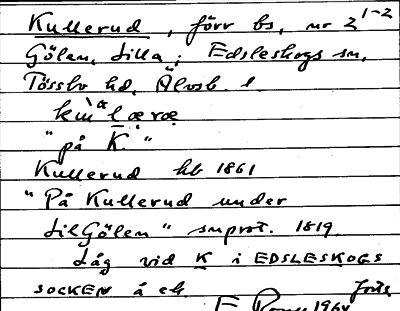 Kullerud, förr bs, nr 2 1-2
Gölen, Lilla; Edsleskogs sn,
Tössbo hd, Älvsb. l.
"på K."
Kullerud hb 1861
"På Kullerud under
LilGölen" snprot. 1819.
Låg vid K i EDSLESKOGS
SOCKEN å ek. forts.
1964